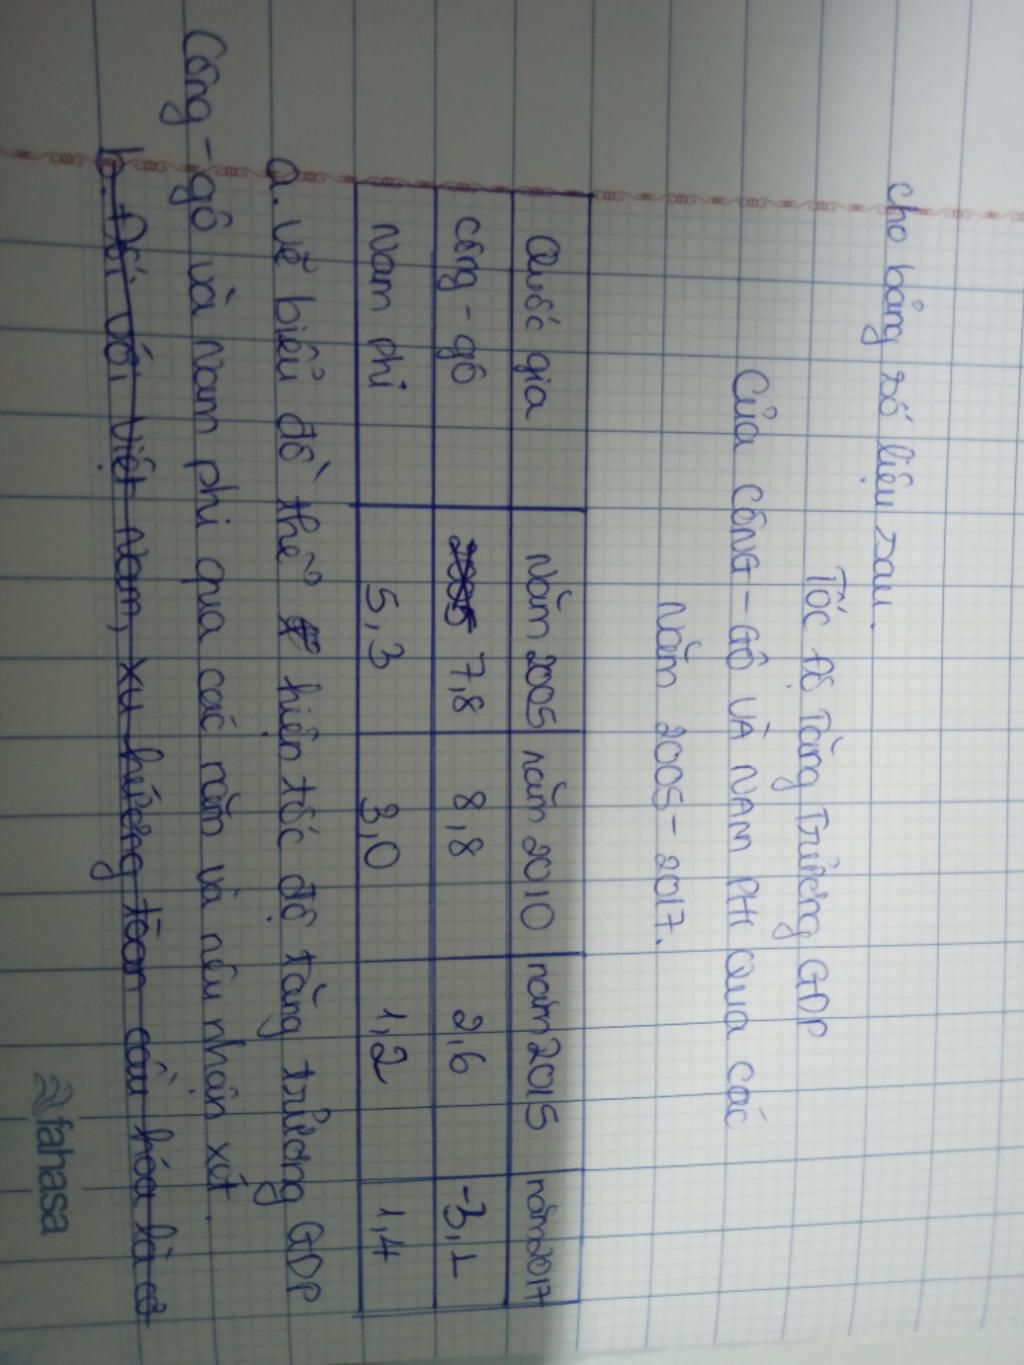 cho bảng số liệu sau.
Tốc Độ Tăng Trưởng GDP
Của CÔNG-GÔ VÀ NAM PHI Qua các
Năm 2005-2017.
Quốc gia Năm 2005 năm 2010 năm 2015 năm 2017
công-gô 7,8 8,8 2,6 -3,1
Nam phi 5,3 3,0 1,2 1,4
a. vẽ biểu đồ thể hiện tốc độ tăng trưởng GDP
Công-gô và Nam phi qua các năm và nêu nhận xét.
b. Đối với Việt Nam, xu hướng toàn cầu hóa là cơ
fahasa